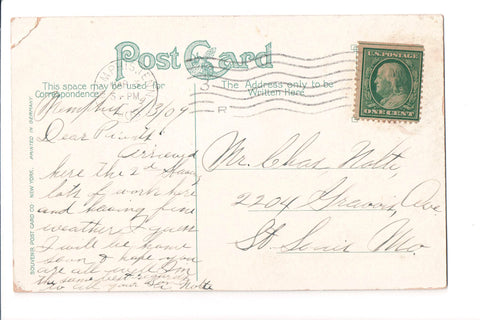 Post Card
This space may be used for
Correspondence
The Address only to be
Written Here.
U.S. POSTAGE
ONE CENT
MEMPHIS, TENN.
5 - PM
Memphis 9/3/09
Dear Friend
Arrived
here the 2nd
lots of work here
and having fine
weather I guess
I will be home
soon & hope you
are all well I am
the same best regards
to all your Bro Nolte
Mr. Chas Nolte,
2204 Gravois Ave
St. Louis Mo.
SOUVENIR POST CARD CO NEW YORK. PRINTED IN GERMANY